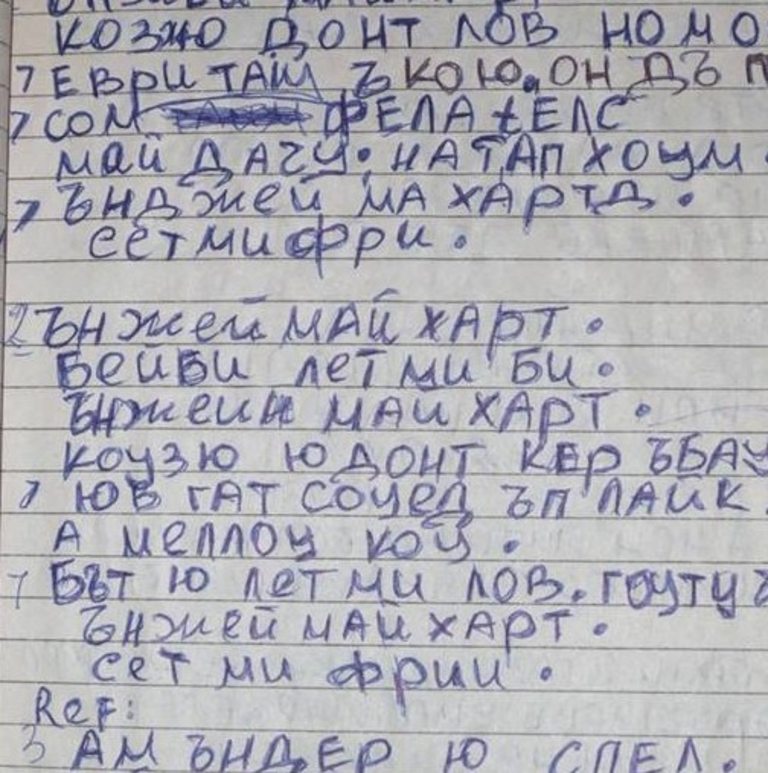 КОЗЮ ДОНТ ЛОВ НОМО
7 ЕВРИ ТАЙМ Ъ КОЮ. ОН ДЪ П
7 СОМ ФЕЛА tЕЛС
МАЙ ДАЧУ. НА ТАП ХОУМ.
7 ЪНДЖЕЙ МА ХАРТД.
СЕТ МИ ФРИ.
2 ЪНЖЕЙ МАЙ ХАРТ.
БЕЙБИ ЛЕТ МИ БИ.
ЪНЖЕЙН МАЙ ХАРТ.
КОУЗЮ Ю ДОНТ КЕР ЪБАУ
7 ЮВ ГАТ СОУЕД ЪП ЛАЙК
А МЕЛЛОУ КОУ.
7 БЪТ Ю ЛЕТ МИ ЛОВ. ГОУТУ
ЪНЖЕЙ МАЙ ХАРТ.
СЕТ МИ ФРИИ.
Ref:
3 АМ ЪНДЕР Ю СПЕЛ.